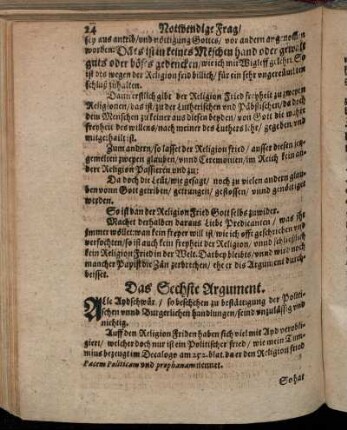 24 Notwendige Frag/
sey aus antrib/ und nötigung Gottes/ vor andern angenommen
worden: Dañ es ist in keines Mẽschen hand oder gewalt
guts oder böses gedencken/ wie ich mit Wigleff gelehrt. So
ist dis wegen der Religion seid billich/ für ein sehr ungereimten
schluß zuhalten.
Dann erstlich gibt der Religion Fried freyheit zu zweyen
Religionen/ das ist/ zu der Lutherischen und Päbstischen/ da doch
dem Menschen zu keiner aus diesen beyden/ von Gott die wahre
freyheit des willens/ nach meiner des Luthers lehr/ gegeben und
mitgetheilt ist.
Zum andern/ so lasset der Religion fried/ ausser diesen jetz-
gemelten zweyen glauben/ unnd Ceremonien/ im Reich kein an-
dere Religion Passieren und zu:
Da doch die Leüt/ wie gesagt/ noch zu vielen andern glau-
ben vonn Gott getriben/ getrungen/ gestossen/ unnd genötiget
werden.
So ist dan der Religion Fried Gott selbs zuwider.
Machet derhalben daraus Liebe Predicanten/ was ihr
immer wöllet: wan kein freyer will ist/ wie ich offt geschrieben und
verfochten/ so ist auch kein freyheit der Religion/ unnd schließlich
kein Religion Fried in der Welt. Darbey bleibts/ unnd wird noch
mancher Papist die Zän zerbrechen/ ehe er dis Argument durch-
beisset.
Das Sechste Argument.
Alle Aydschwär/ so beschehen zu bestättigung der Politi-
schen unnd Burgerlichen handlungen/ seind unzulässig und
nichtig.
Auff den Religion Friden haben sich viel mit Ayd verobli-
giert/ welcher doch nur ist ein Politischer fried/ wie mein Tim-
mius bezeugt im Decalogo am 252. blat. da er den Religion fried
Pacem Politicam und prophanam nennet.
So hat